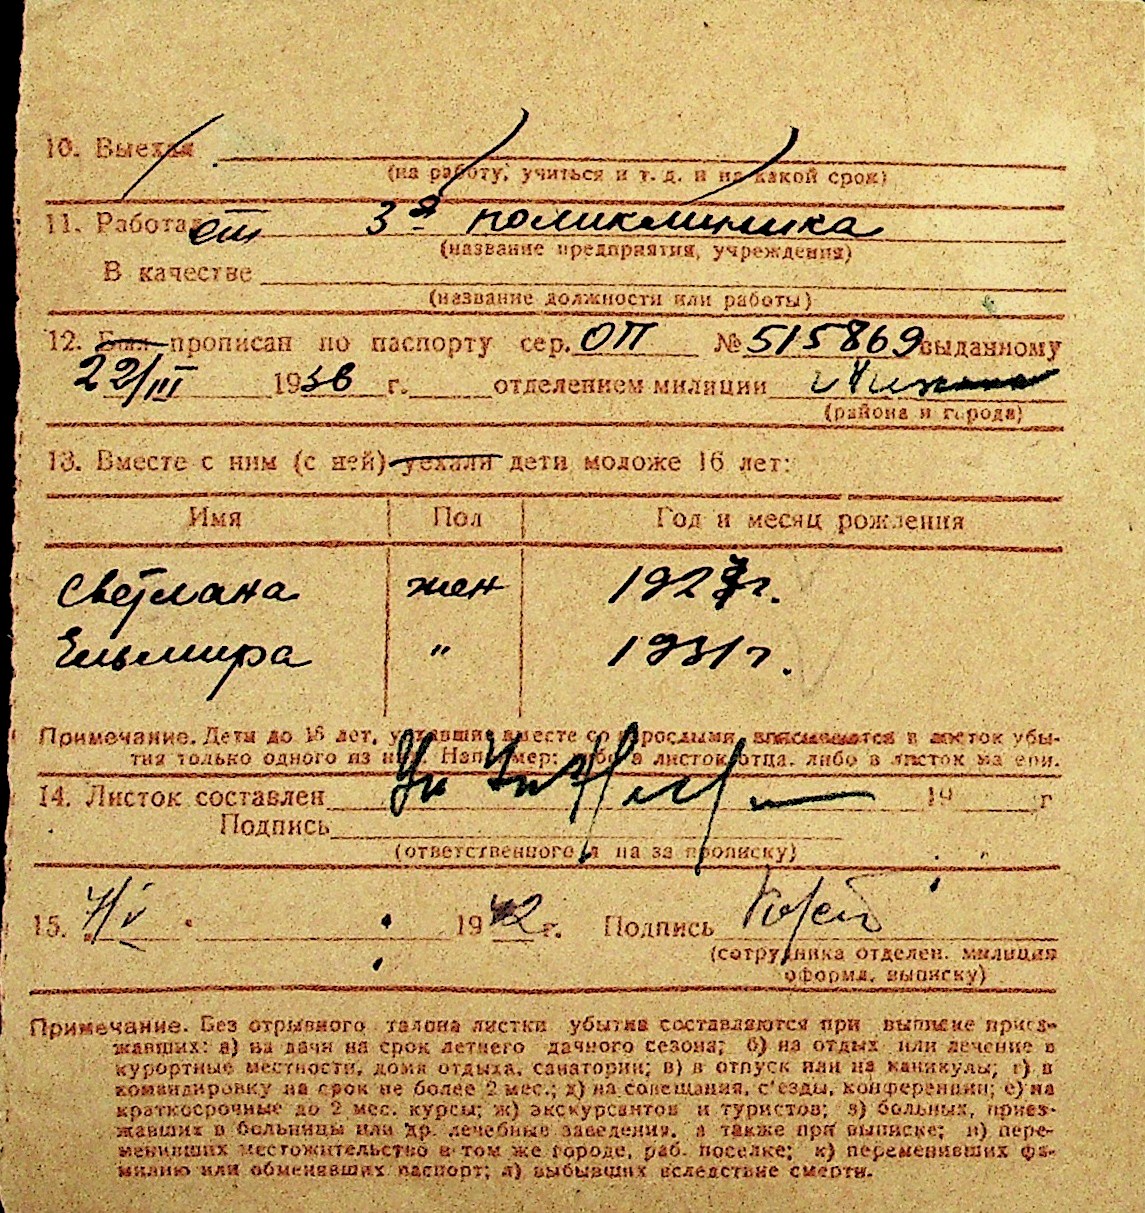 10. Выехал
(на работу, учиться и т. д. и на какой срок)
11. Работает 3я поликлиника
(название предприятия, учреждения)
В качестве
(название должности или работы)
12. Был прописан по паспорту сер. ОП № 515869 выданному
22/III 1936 г. отделением милиции
(района и города)
13. Вместе с ним (с ней) уехали дети моложе 16 лет:
Имя Пол Год и месяц рождения
Светлана жен 1927г.
Ельмира " 1931г.
Примечание. Дети до 16 лет, уехавшие вместе со взрослыми, вписываются в листок убы-
тия только одного из них. Например: либо в листок отца, либо в листок матери.
14. Листок составлен 19 г
Подпись
(ответственного за прописку)
15. 4/V 1942 г. Подпись
(сотрудника отделен. милиции
оформл. выписку)
Примечание. Без отрывного талона листки убытия составляются при выписке приез-
жавших: а) на дачи на срок летнего дачного сезона; б) на отдых или лечение в
курортные местности, дома отдыха, санатории; в) в отпуск или на каникулы; г) в
командировку на срок не более 2 мес.; д) на совещания, с'езды, конференции; е) на
краткосрочные до 2 мес. курсы; ж) экскурсантов и туристов; з) больных, приез-
жавших в больницы или др. лечебные заведения, а также при выписке; и) пере-
менивших местожительство в том же городе, раб. поселке; к) переменивших фа-
милию или обменявших паспорт; л) выбывших вследствие смерти.